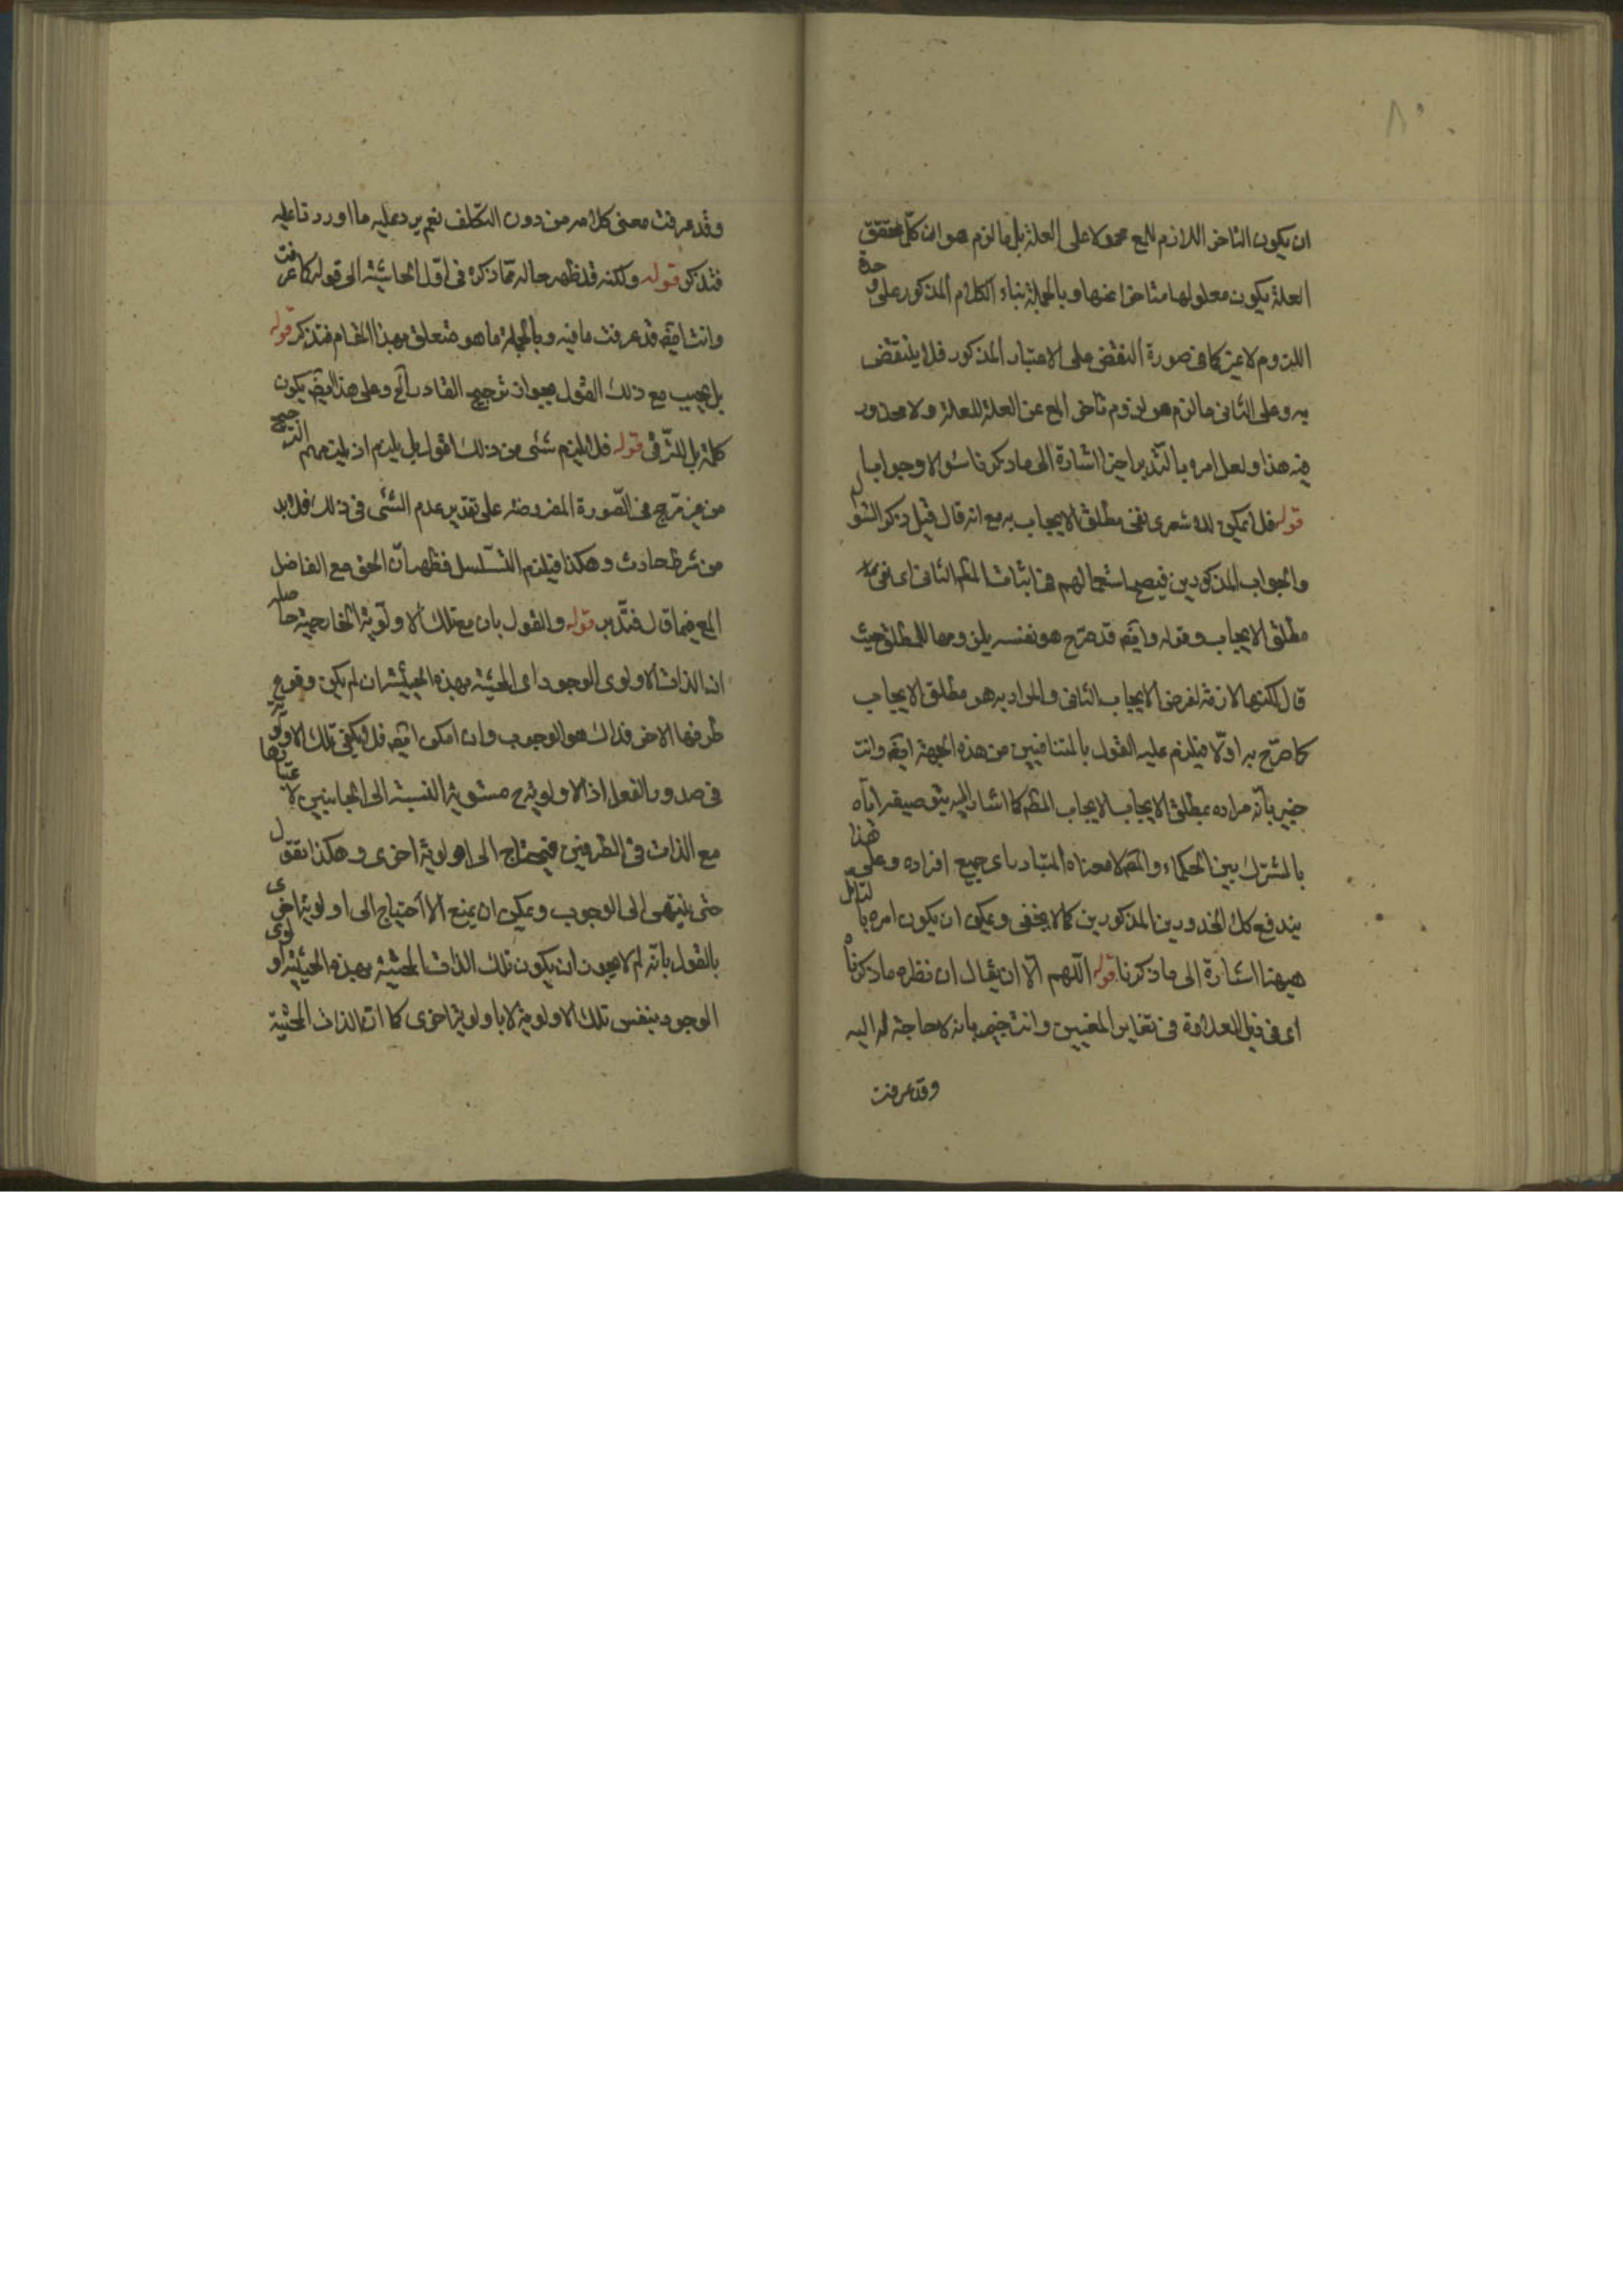 ٨٠
ان يكون التاخر اللازم للمع محمولا على العلة بل ما لزم هو ان كل تحقق
العلة يكون معلولها متاخرا عنها و بالجملة بناء الكلام المذكور على وحدة
اللزوم لا غير كما فى صورة النقض على الاعتبار المذكور فلا ينتقض
به وعلى الثانى ما لزم هو لزوم تاخر المع عن العلة للعلة ولا محذور
فيه هذا ولعل امره بالتدبر اخيرا اشارة الى ما ذكرنا سؤالا وجوابا
قوله فلا يمكن للاشعرى نفى مطلق الايجاب به مع انه قال قبل ذكر السؤال
والجواب المذكورين فيصح استعمالهم فى اثبات المط الثانى اى نفى
مطلق الايجاب وقوله وايضه قد صرح هو نفسه بلزومها للمطلق حيث
قال لكنها لازمة لفرض الايجاب الثانى والمراد به هو مطلق الايجاب
كما صرح به اولا فيلزم عليه القول بالمتنافيين من هذه الجهة ايضه وانت
خبير بانه مراده بمطلق الايجاب الايجاب المط كما اشار اليه بتوصيفه اياه
بالمشترك بين الحكماء و لا معناه المتبادر اى جميع افراده وعلى هذا
يندفع كلا المذكورين كما لا يخفى ويمكن ان يكون امره بالتامل
ههنا اشارة الى ما ذكرنا قوله اللهم الا ان يقال ان نظره ما ذكرناه
اى فى ذيل العلاوة فى تغاير المعنيين وانت خبير بانه لا حاجة له اليه
وقد عرفت
وقد عرفت معنى كلامه من دون التكلف نعم يرد عليه ما اوردنا عليه
فتذكر قوله ولكنه قد ظهر حاله مما ذكره فى اول الحاشية الى قوله كما عرفت
وانت ايضه قد عرفت ما فيه وبالجملة ما هو متعلق بهذا المقام فتذكر قوله
بل يجيب مع ذلك القول بجواز ترجيح القادر الخ وعلى هذا ايضه يكون
كلمة بل للترقى قوله فلا يلزم شئ من ذلك اقول بل يلزم اذ يلزمهم الترجيح
من غير مرجح فى الصورة المفروضة على تقدير عدم الشئ فى ذلك فلا بد
من شرط حادث وهكذا فيلزم التسلسل فظهر ان الحق مع الفاضل
المع فيما قال فتدبر قوله والقول بان مع تلك الاولوية الخارجية حاصله
ان الذات الاولوى الوجود اى الحيثية بهذه الحيثية ان لم يكن وقوع
طرفها الاخر فذلك هو الوجوب وان امكن ايضه فلا يكفى تلك الاولوية
فى صدور الفعل اذ الاولوية ح مستوية النسبة الى الجانبين لاعتبارها
مع الذات فى الطرفين فيحتاج الى اولوية اخرى وهكذا نقول
حتى ينتهى الى الوجوب ويمكن ان يمنع الاحتياج الى اولوية اخرى
بالقول بانه لم لا يجوز ان يكون تلك الذات الحيثية بهذه الحيثية اولوى
الوجود بنفس تلك الاولوية لا باولوية اخرى كما ان الذات الحيثية